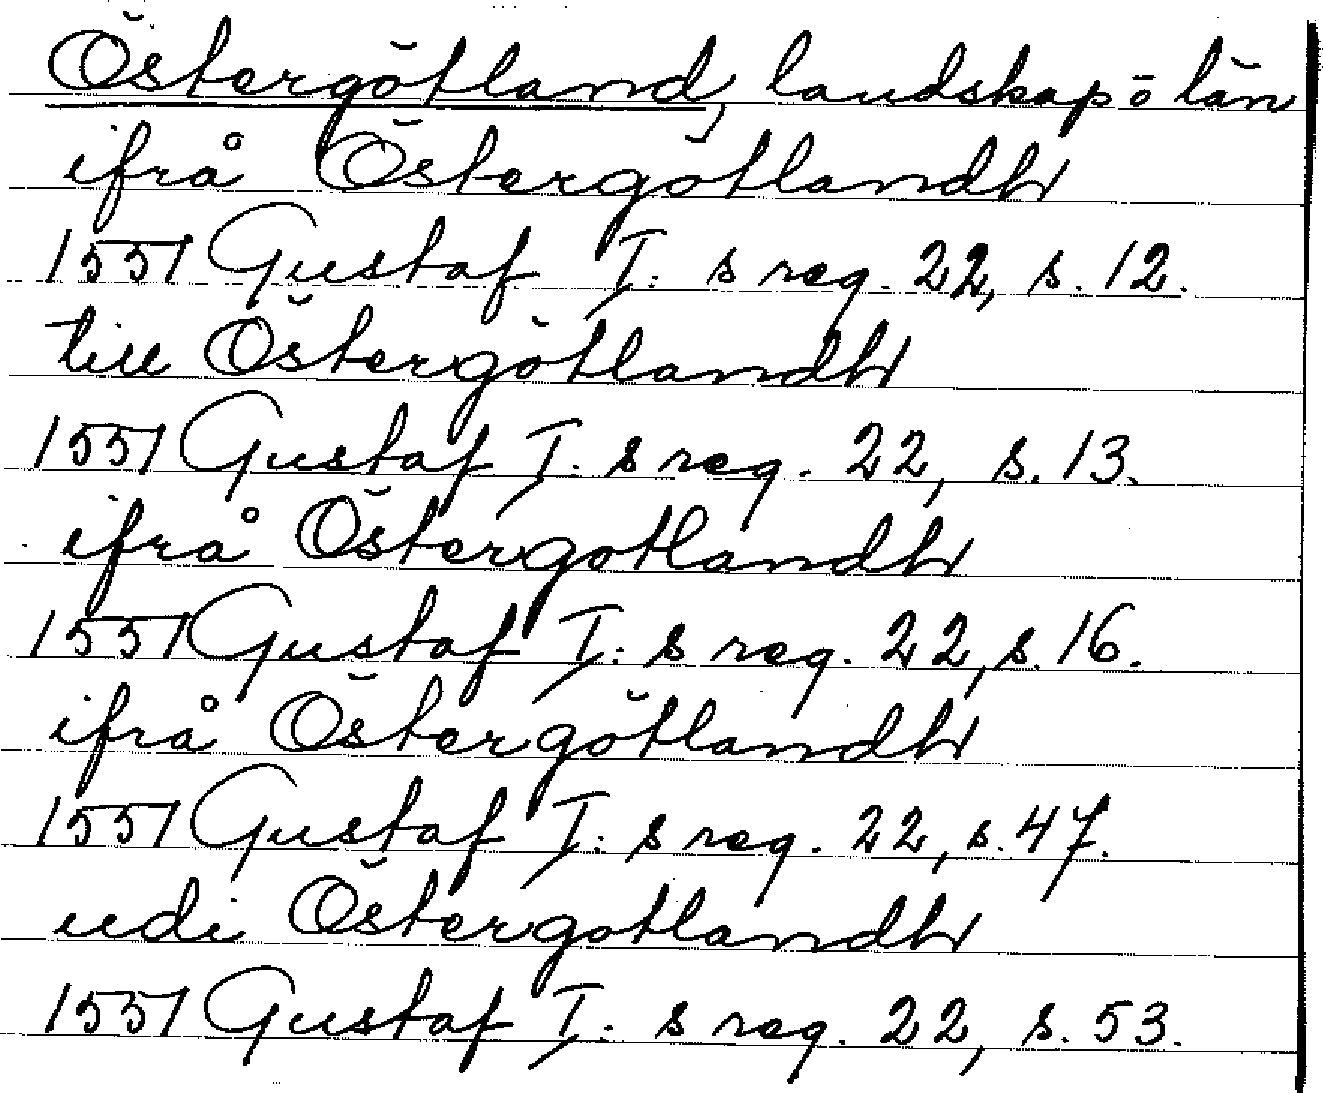 Östergötland, landskap o län
ifrå Östergötlandh
1551 Gustaf I: s reg. 22, s. 12.
till Östergötlandh
1551 Gustaf I: s reg. 22, s. 13.
ifrå Östergotlandh
1551 Gustaf I: s reg. 22, s. 16.
ifrå Östergötlandh
1551 Gustaf I: s reg. 22, s. 47.
udi Östergotlandh
1551 Gustaf I: s reg. 22, s. 53.